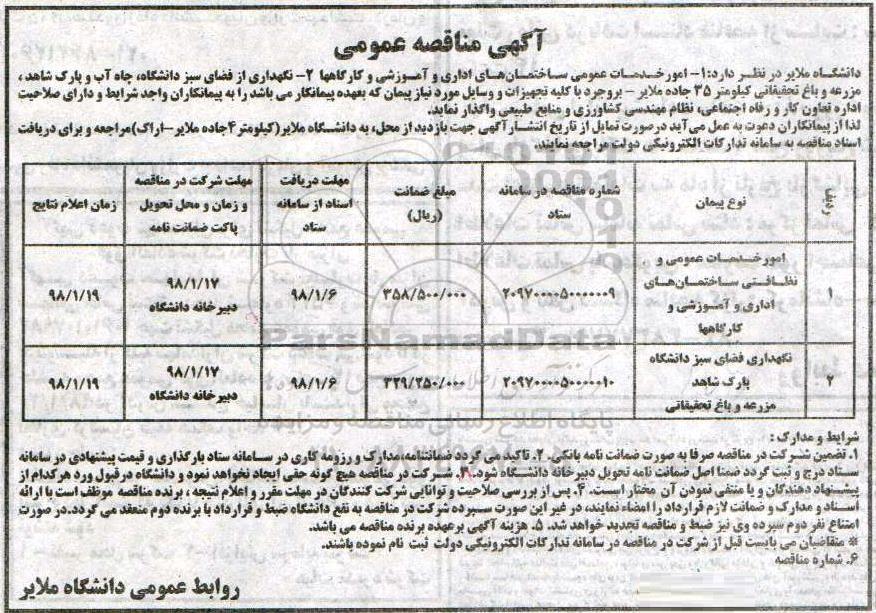 آگهی مناقصه عمومی
دانشگاه ملایر در نظر دارد: ۱- امور خدمات عمومی ساختمان‌های اداری و آموزشی و کارگاهها ۲- نگهداری از فضای سبز دانشگاه، چاه آب و پارک شاهد ،
مزرعه و باغ تحقیقاتی کیلومتر ۳۵ جاده ملایر - بروجرد با کلیه تجهیزات و وسایل مورد نیاز پیمان که بعهده پیمانکار می باشد را به پیمانکاران واجد شرایط و دارای صلاحیت
اداره تعاون کار و رفاه اجتماعی، نظام مهندسی کشاورزی و منابع طبیعی واگذار نماید.
لذا از پیمانکاران دعوت به عمل می‌آید درصورت تمایل از تاریخ انتشار آگهی جهت بازدید از محل، به دانشگاه ملایر(کیلومتر ۴ جاده ملایر-اراک)مراجعه و برای دریافت
اسناد مناقصه به سامانه تدارکات الکترونیکی دولت مراجعه نمایند.
ردیف | نوع پیمان | شماره مناقصه در سامانه ستاد | مبلغ ضمانت (ریال) | مهلت دریافت اسناد از سامانه ستاد | مهلت شرکت در مناقصه و زمان و محل تحویل پاکت ضمانت نامه | زمان اعلام نتایج
۱ | امور خدمات عمومی و نظافتی ساختمان‌های اداری و آموزشی و کارگاهها | ۲۰۹۷۰۰۰۰۵۰۰۰۰۰۰۹ | ۳۵۸/۵۰۰/۰۰۰ | ۹۸/۱/۶ | ۹۸/۱/۱۷ دبیرخانه دانشگاه | ۹۸/۱/۱۹
۲ | نگهداری فضای سبز دانشگاه پارک شاهد مزرعه و باغ تحقیقاتی | ۲۰۹۷۰۰۰۰۵۰۰۰۰۰۱۰ | ۳۲۹/۲۵۰/۰۰۰ | ۹۸/۱/۶ | ۹۸/۱/۱۷ دبیرخانه دانشگاه | ۹۸/۱/۱۹
ParsNamadData
پایگاه اطلاع رسانی مناقصه و مزایده
شرایط و مدارک :
۱. تضمین شرکت در مناقصه صرفا به صورت ضمانت نامه بانکی. ۲. تاکید می گردد ضمانتنامه،مدارک و رزومه کاری در سامانه ستاد بارگذاری و قیمت پیشنهادی در سامانه
ستاد درج و ثبت گردد ضمنا اصل ضمانت نامه تحویل دبیرخانه دانشگاه شود. ۳. شرکت در مناقصه هیچ گونه حقی ایجاد نخواهد نمود و دانشگاه درقبول ورد هرکدام از
پیشنهاد دهندگان و یا منتفی نمودن آن مختار است. ۴. پس از بررسی صلاحیت و توانایی شرکت کنندگان در مهلت مقرر و اعلام نتیجه ، برنده مناقصه موظف است با ارائه
اسناد و مدارک و ضمانت لازم قرارداد را امضاء نمایند، در غیر این صورت سپرده شرکت در مناقصه به نفع دانشگاه ضبط و قرارداد با برنده دوم منعقد می گردد.در صورت
امتناع نفر دوم سپرده وی نیز ضبط و مناقصه تجدید خواهد شد. ۵. هزینه آگهی برعهده برنده مناقصه می باشد.
* متقاضیان می بایست قبل از شرکت در مناقصه در سامانه تدارکات الکترونیکی دولت ثبت نام نموده باشند.
۶. شماره مناقصه
روابط عمومی دانشگاه ملایر